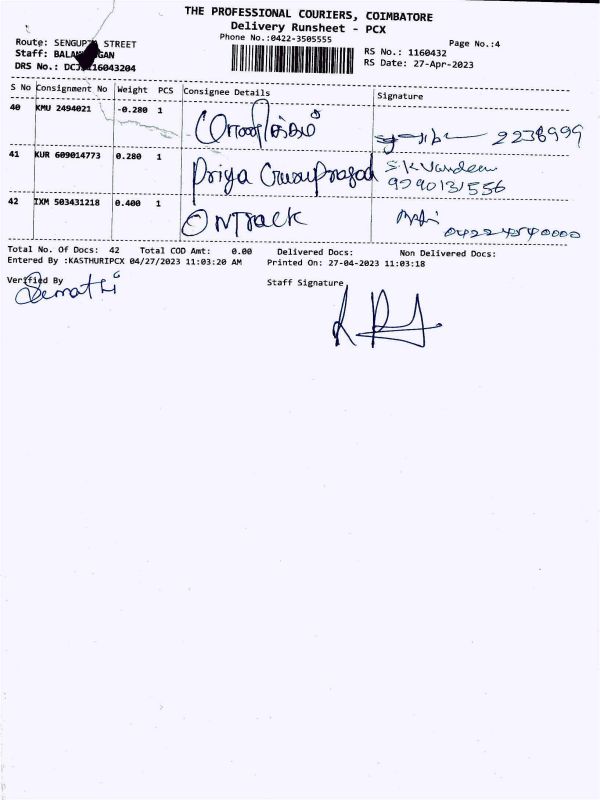 THE PROFESSIONAL COURIERS, COIMBATORE
Delivery Runsheet - PCX
Phone No.:0422-3505555
Page No.:4
Route: SENGUPTA STREET
Staff:
DRS No.:
RS No.: 1160432
RS Date: 27-Apr-2023
S No Consignment No Weight PCS Consignee Details Signature
40 KMU 2494021 -0.280 1 2238999
41 KUR 609014773 0.280 1 Priya Guruprasad S.K Vandem
9590131556
42 IXM 503431218 0.400 1 ONTRACK
Total No. Of Docs: 42 Total COD Amt: 0.00 Delivered Docs: Non Delivered Docs:
Entered By :KASTHURIPCX 04/27/2023 11:03:20 AM Printed On: 27-04-2023 11:03:18
Verified By Staff Signature